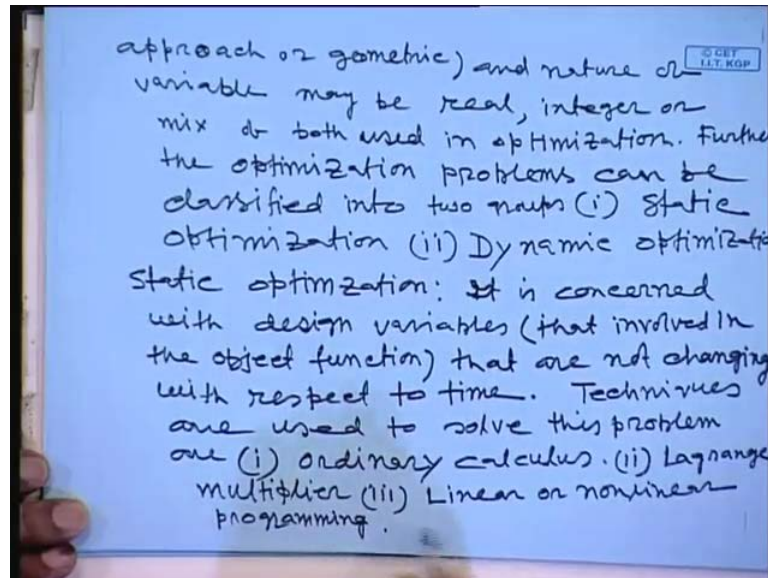 approach or geometric) and nature of
© CET
I.I.T. KGP
variable may be real, integer or
mix of both used in optimization. Furthe
the optimization problems can be
classified into two groups (i) Static
Optimization (ii) Dynamic optimizatio
Static optimzation: It is concerned
with design variables (that involved in
the object function) that are not changing
with respect to time. Techniques
are used to solve this problem
are (i) ordinary calculus. (ii) Lagrange
multiplier (iii) Linear or nonlinear
programming.